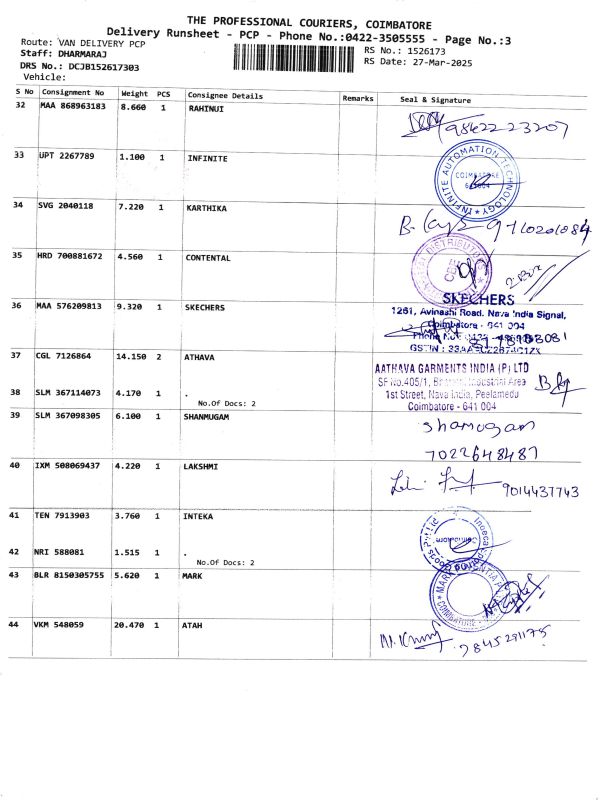 THE PROFESSIONAL COURIERS, COIMBATORE
Delivery Runsheet - PCP - Phone No.:0422-3505555 - Page No.:3
Route: VAN DELIVERY PCP
Staff: DHARMARAJ
DRS No.: DCJB152617303
Vehicle:
RS No.: 1526173
RS Date: 27-Mar-2025
S No Consignment No Weight PCS Consignee Details Remarks Seal & Signature
32 MAA 868963183 8.660 1 RAHINUI
9842223207
33 UPT 2267789 1.100 1 INFINITE
INFINITE AUTOMATION TECHNOLOGY
COIMBATORE
34 SVG 2040118 7.220 1 KARTHIKA
35 HRD 700881672 4.560 1 CONTENTAL
36 MAA 576209813 9.320 1 SKECHERS
SKECHERS
1261, Avinashi Road, Nava India Signal,
Coimbatore - 641 004
37 CGL 7126864 14.150 2 ATHAVA
AATHAVA GARMENTS INDIA (P) LTD
SF No.405/1, Industrial Area
1st Street, Nava India, Peelamedu
Coimbatore - 641 004
38 SLM 367114073 4.170 1 .
No.Of Docs: 2
39 SLM 367098305 6.100 1 SHANMUGAM
shamugam
7022648487
40 IXM 508069437 4.220 1 LAKSHMI
9014437743
41 TEN 7913903 3.760 1 INTEKA
42 NRI 588081 1.515 1 .
No.Of Docs: 2
43 BLR 8150305755 5.620 1 MARK
44 VKM 548059 20.470 1 ATAH
7845291175